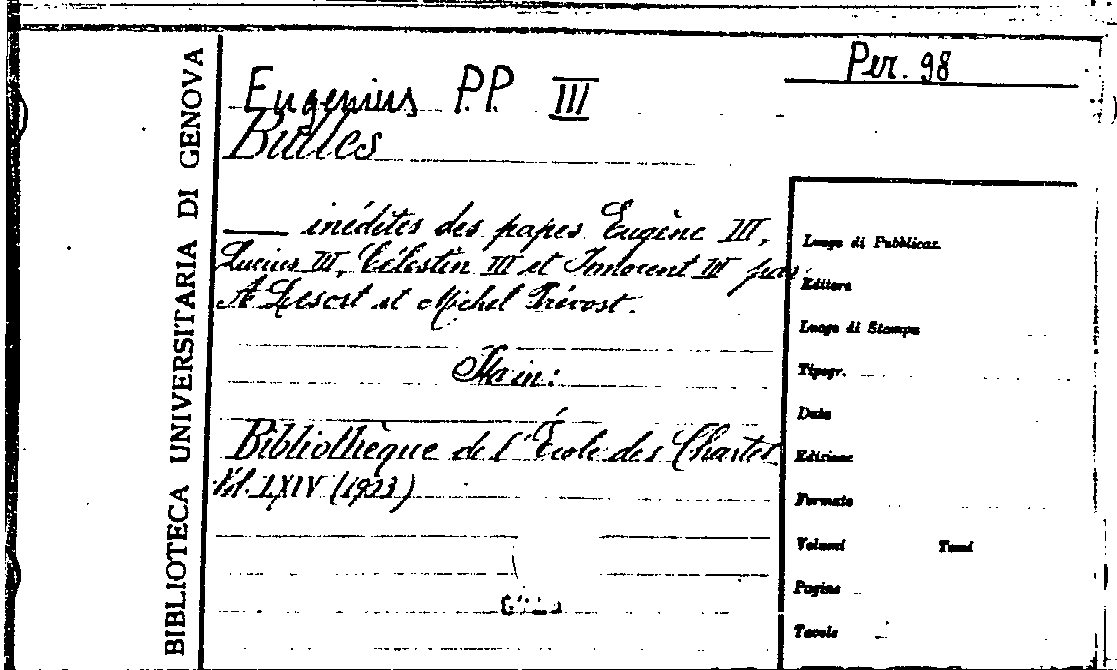 BIBLIOTECA UNIVERSITARIA DI GENOVA
Per. 98
Eugenius P.P. III
Bulles
___ inédites des papes Eugène III,
Lucius III, Célestin III et Innocent III par
A Lesort et Michel Prévost.
Sta in:
Bibliothèque de l'École des Chartes
Vol. LXIV (1903)
Luogo di Pubblicaz.
Editore
Luogo di Stampa
Tipogr.
Data
Edizione
Formato
Volumi Tomi
Pagine
Tavole